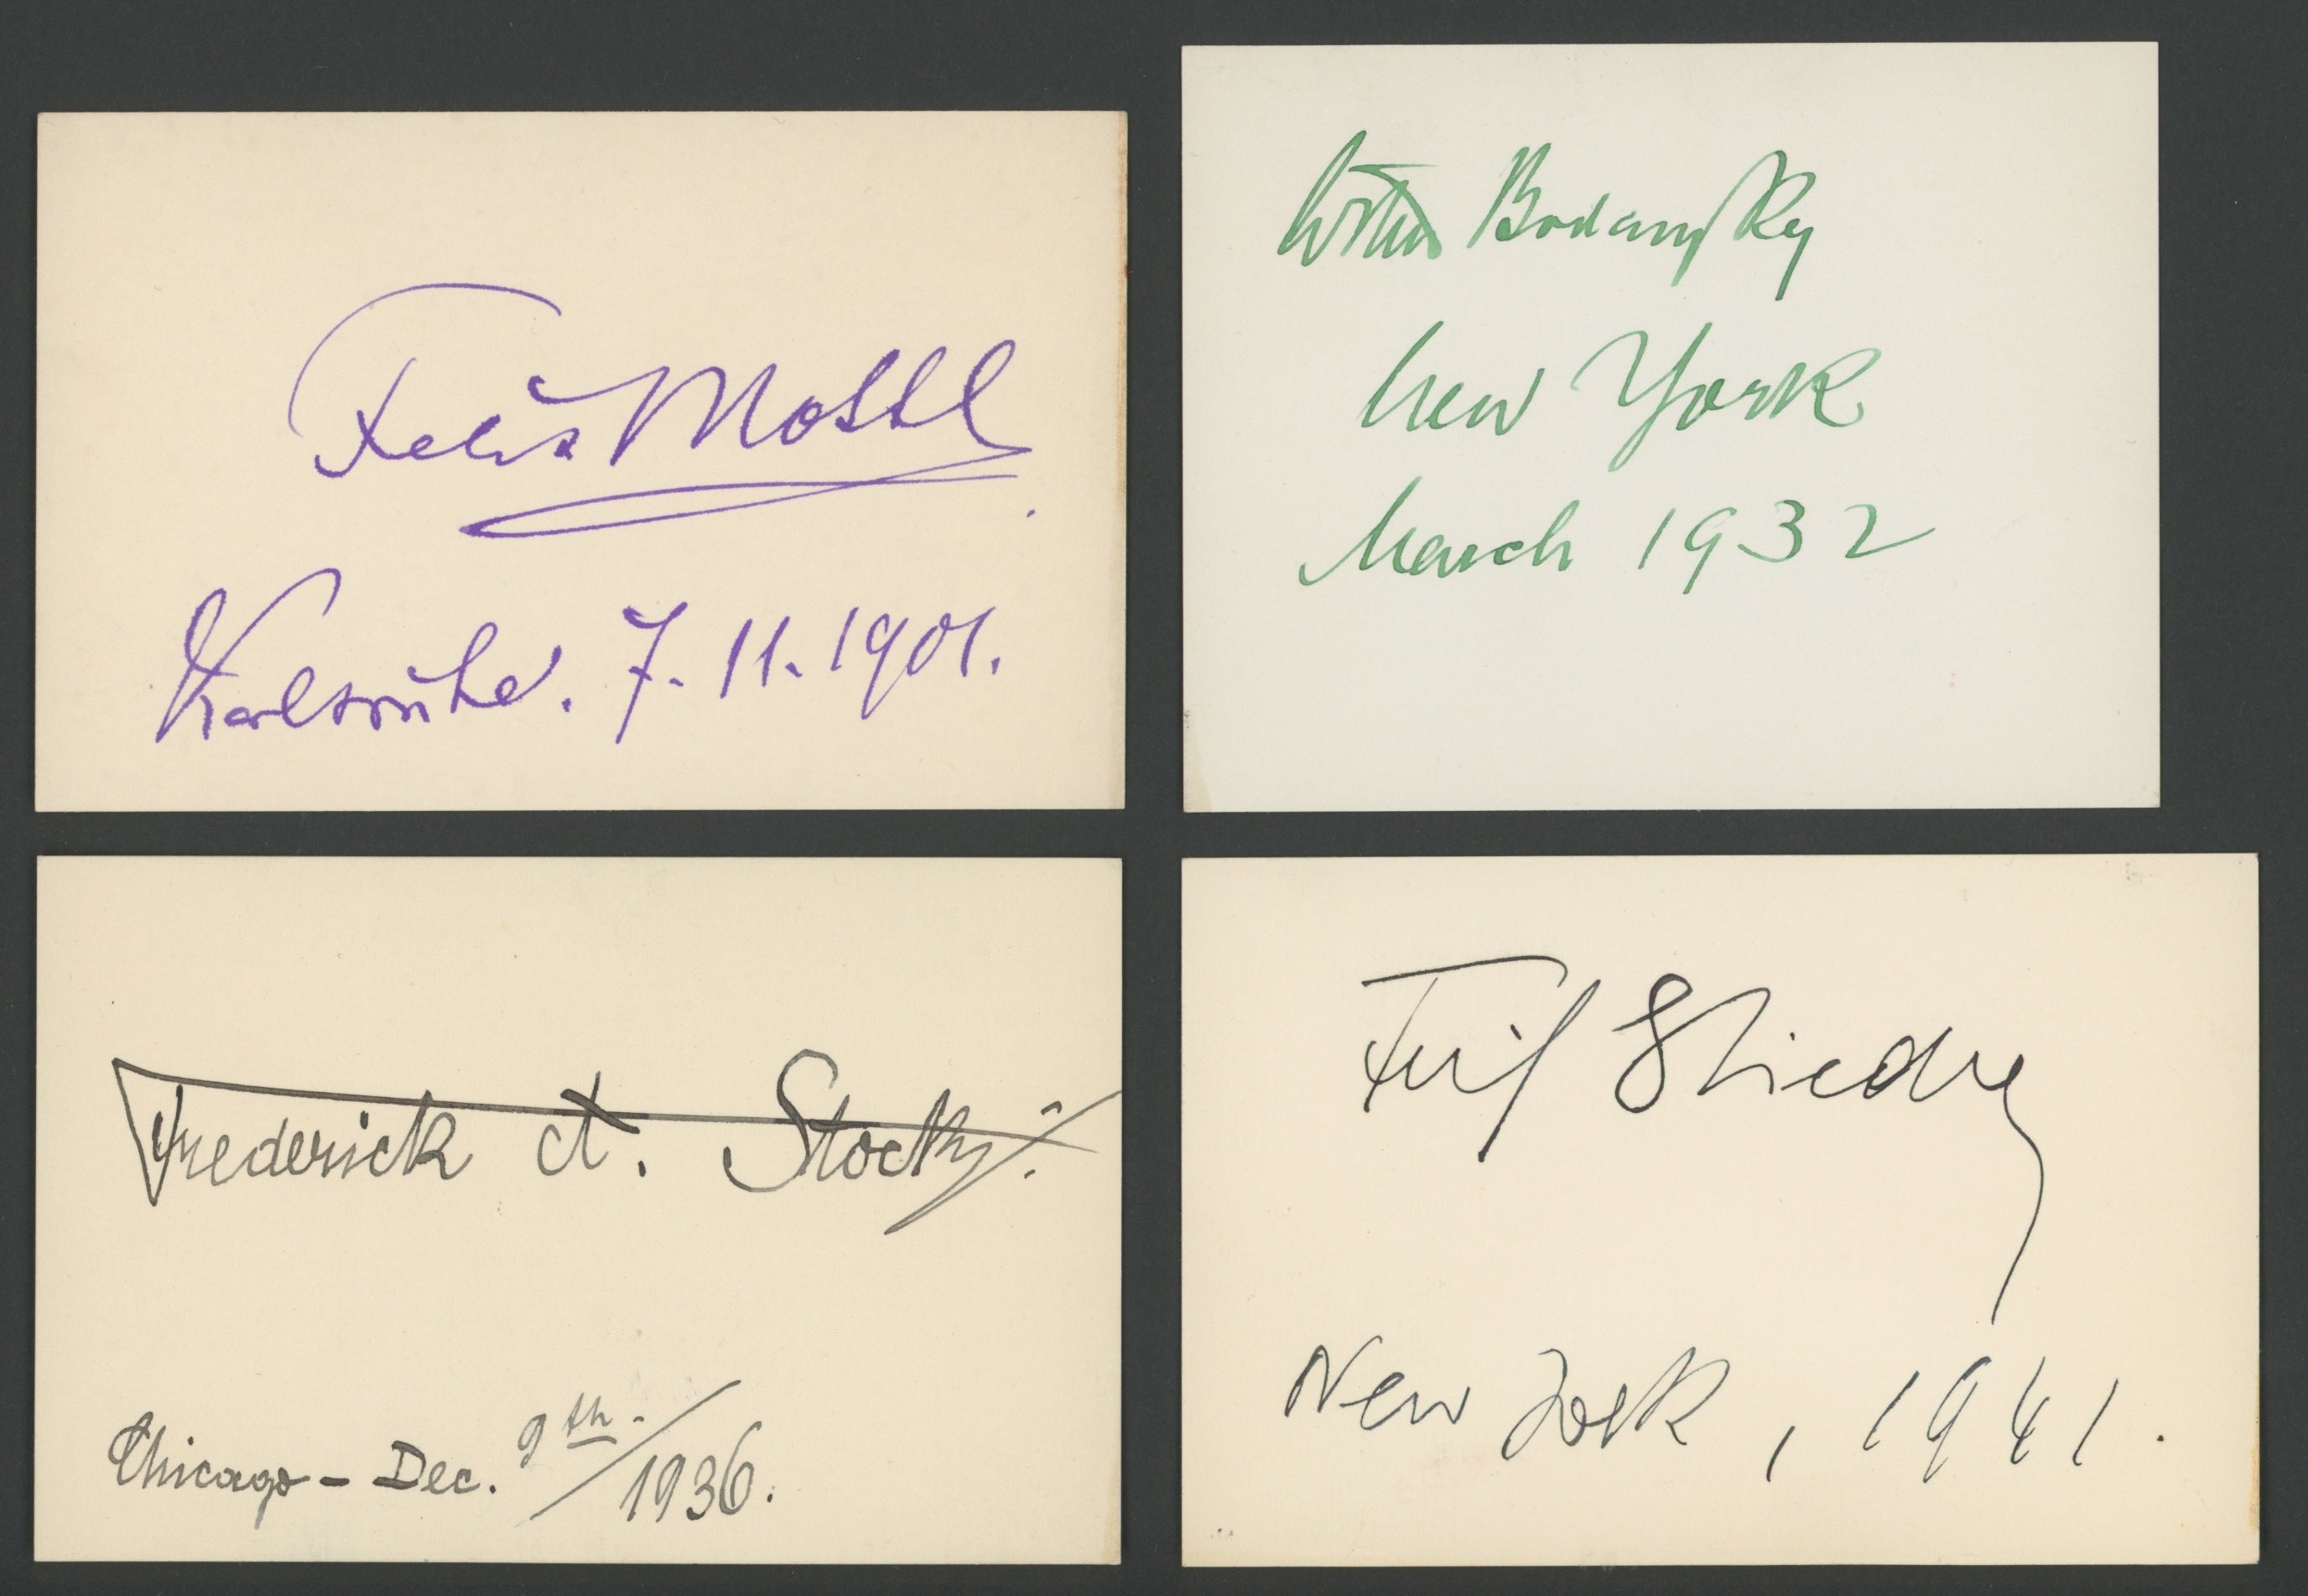 Felix Mottl
Karlsruhe. 7. 11. 1901.
Artur Bodanzky
New York
March 1932
Frederick A. Stock
Chicago - Dec. 9th. / 1936.
Fritz Stiedry
New York, 1941.